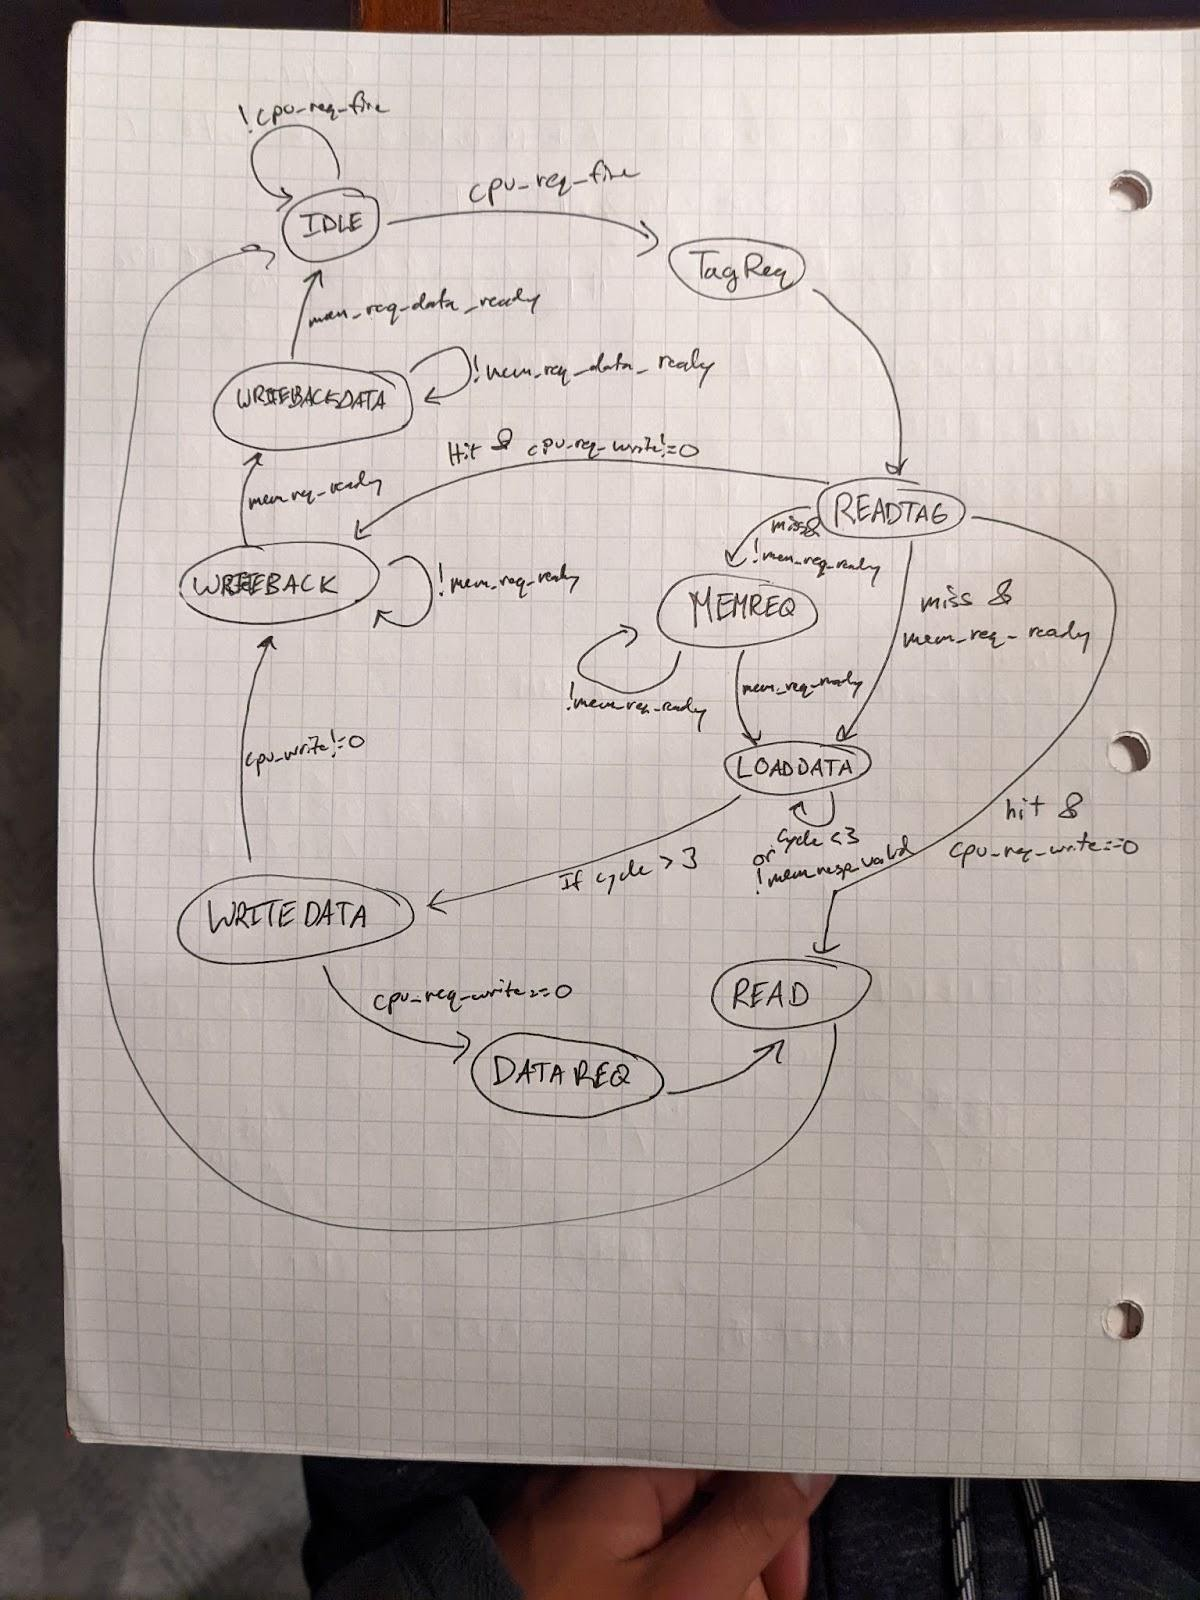 !cpu_req_fire
cpu_req_fire
IDLE
TagReq
mem_req_data_ready
!mem_req_data_ready
WRITEBACKDATA
Hit & cpu_req_write!=0
mem_req_ready
READTAG
miss&
!mem_req_ready
WRITEBACK
!mem_req_ready
MEMREQ
miss &
mem_req_ready
mem_req_ready
!mem_req_ready
cpu_write!=0
LOADDATA
hit &
cpu_req_write==0
cycle <3
or
!mem_resp_valid
If cycle >3
WRITEDATA
cpu_req_write==0
READ
DATAREQ